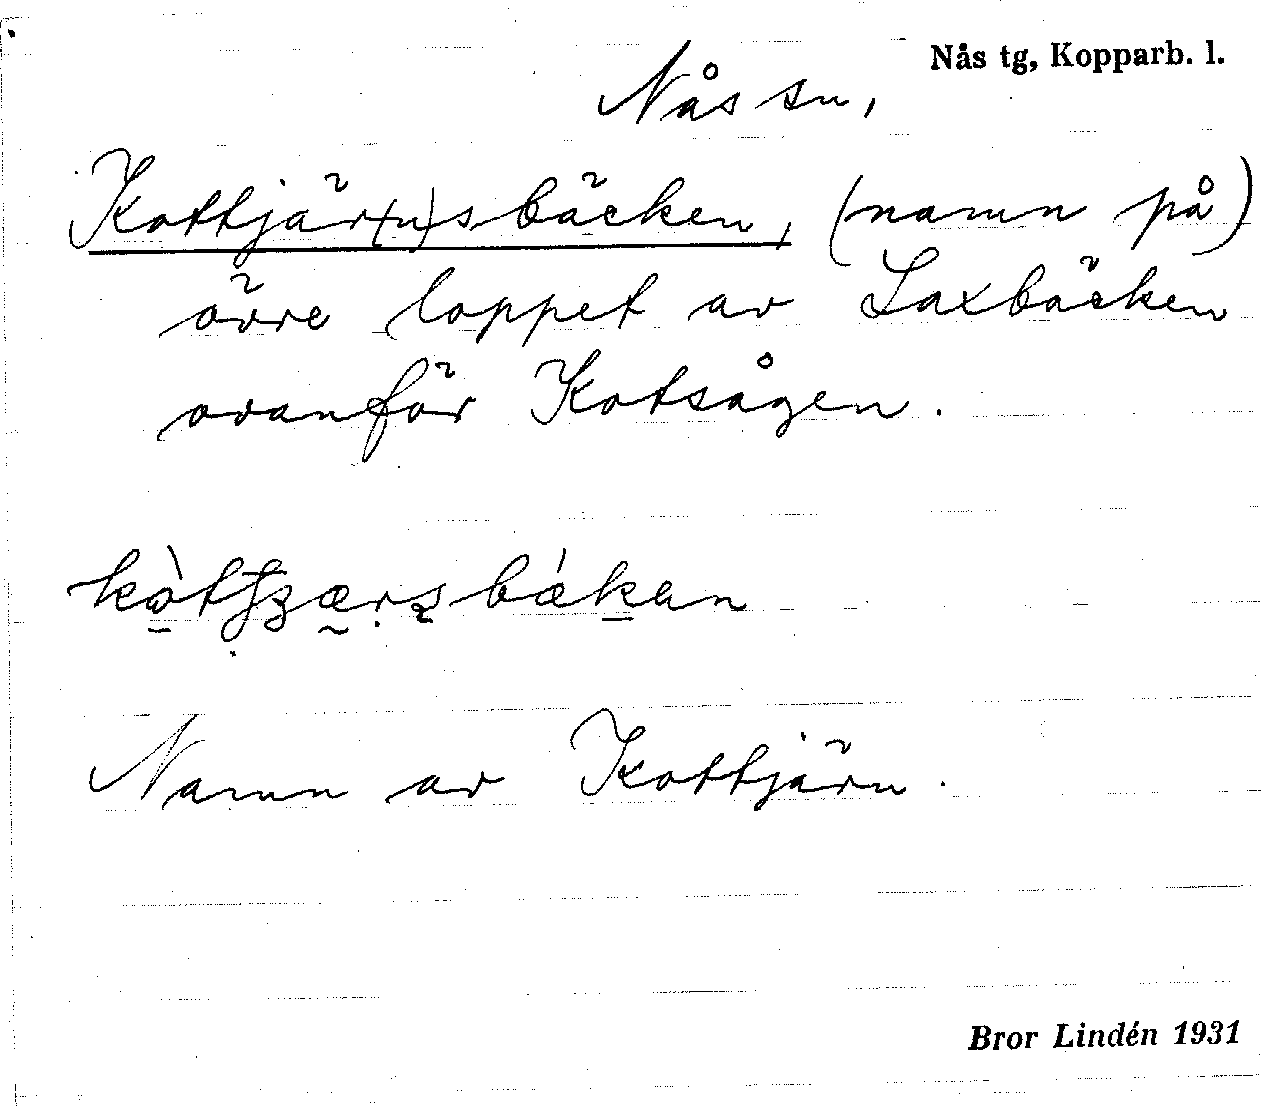 Nås tg, Kopparb. l.
Nås sn,
Kottjär(n)sbäcken, (namn på)
övre loppet av Laxbäcken
ovanför Kotsågen.
Namn av Kottjärn.
Bror Lindén 1931